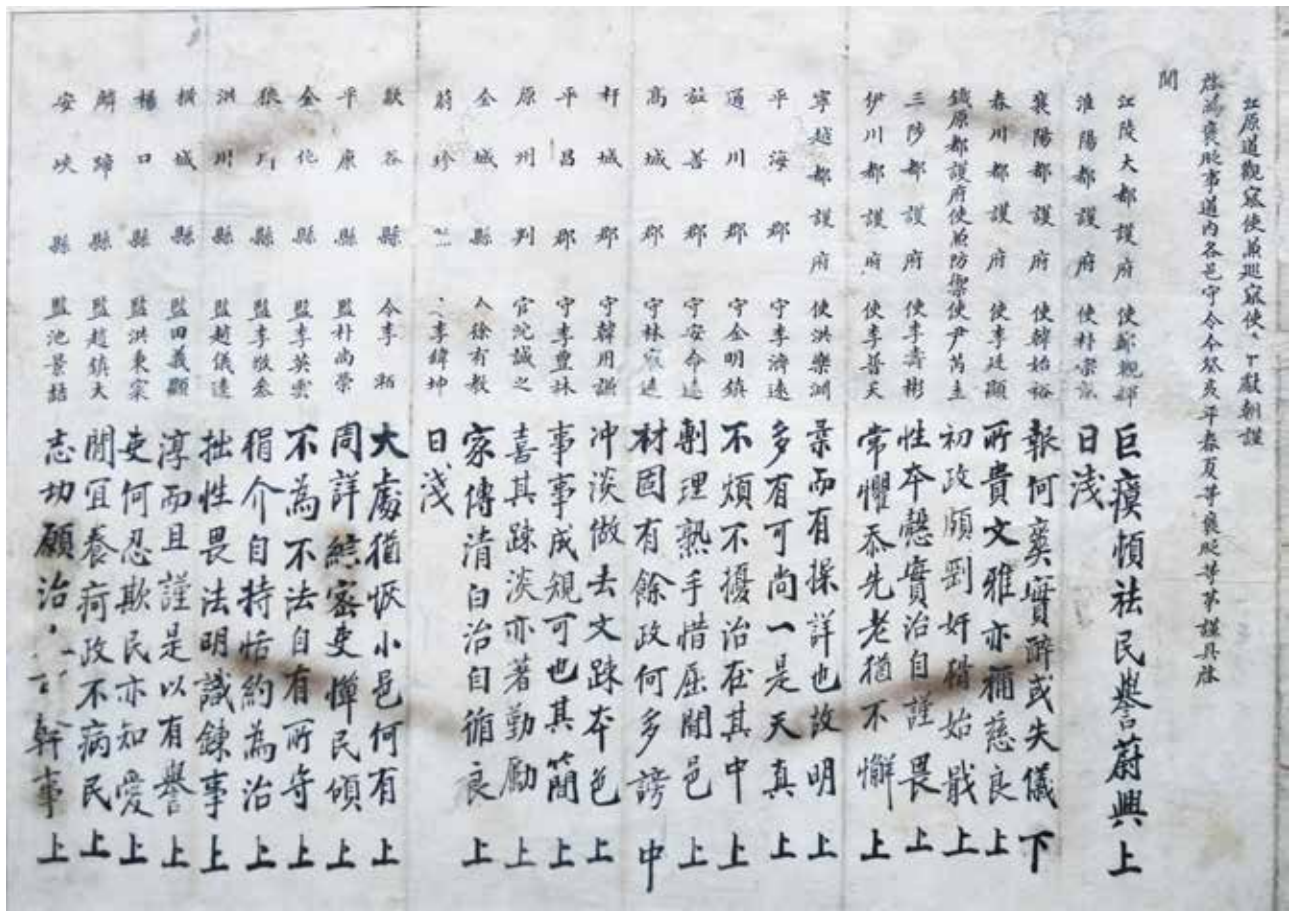 江原道觀察使兼巡察使 獻朝謹
啓爲褒貶事道内各邑守令今癸亥平春夏等褒貶等第謹具啓
聞
江陵大都護府使鄭觀輝巨瘼頓祛民譽蔚興上
淮陽都護府使朴宗京日淺
襄陽都護府使韓始裕報何爽實醉或失儀下
春川都護府使李廷顯所貴文雅亦稱慈良上
鐵原都護府使兼防禦使尹芮圭初政頗剛奸猾始戢上
三陟都護府使李壽彬性本戇實治自謹畏上
伊川都護府使李普天常懼忝先老猶不懈上
寧越都護府使洪樂淵柔而有操詳也故明上
平海郡守李濟遠多有可尚一是天眞上
通川郡守金明鎭不煩不擾治在其中上
㫌善郡守安命遠剸理熟手惜屈閒邑上
高城郡守林 遠材固有餘政何多謗中
杆城郡守韓用謙冲淡做去文疎本色上
平昌郡守李豊林事事成規可也其簡上
原州判官沈誠之喜其踈淡亦著勤勵上
金城縣令徐有敎家傳清白治自循良上
蔚珍 李緯坤日淺
歙谷縣令李 大處猶恢小邑何有上
平康縣監朴尚榮周詳綜密吏憚民頌上
金化縣監李英雲不為不法自有所守上
狼川縣監李敬參狷介自持恬約為治上
洪川縣監趙儀逵拙性畏法明識鍊事上
橫城縣監田義顯淳而且謹是以有譽上
楊口縣監洪秉宗吏何忍欺民亦知愛上
麟蹄縣監趙鎭大閒宜養痾政不病民上
安峽縣監池景喆志切願治 幹事上